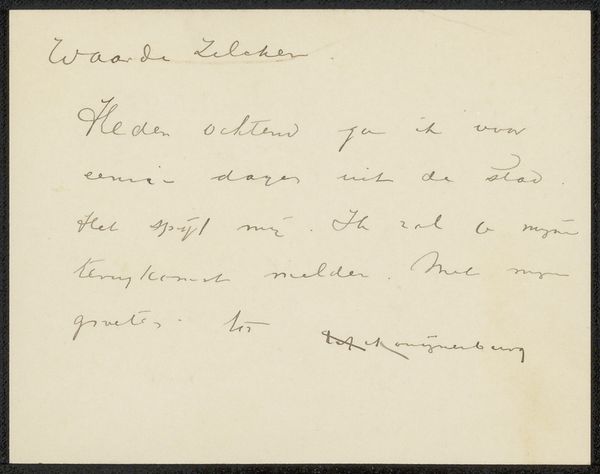 Waarde Zilcken
Heden ochtend ga ik voor
eenige dagen uit de stad.
Het spijt mij. Ik zal U mijne
terugkomst melden. Met mijne
groeten. tt
Konijnenburg